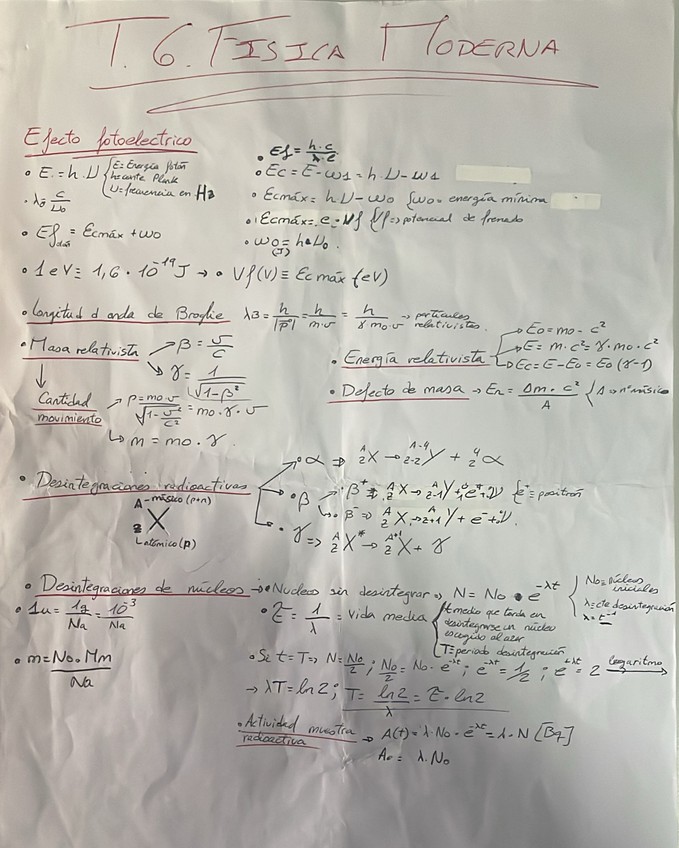 T.6. FISICA MODERNA
Efecto fotoelectrico
• E = h·υ { E = Energía fotón
h = cante Plank
υ = frecuencia en Hz
• λ0 = c/υ0
• Ef = Ecmáx + wo
• 1 eV ≡ 1,6 · 10^-19 J → • Vf(V) ≡ Ec máx (eV)
• Ef = h·c/λ·e
• Ec = E - w1 = h·υ - w1
• Ecmáx = h·υ - wo { wo = energía mínima
• Ecmáx = e·Vf { Vf => potencial de frenado
• wo = h·υo.
(J)
• Longitud d onda de Broglie λB = h/|p| = h/m·v = h/γ mo·v → particulas relativistas.
• Masa relativista → β = v/c
↘ γ = 1/√1-β²
↓
Cantidad movimiento → p = mo·v/√1-v²/c² = mo·γ·v
↳ m = mo·γ.
• Energía relativista → Eo = mo·c²
→ E = m·c² = γ·mo·c²
→ Ec = E - Eo = Eo(γ-1)
• Defecto de masa → En = Δm·c²/A { A → nº másico
• Desintegraciones radioactivas
→ • α ⇒ A/Z X → A-4/Z-2 Y + 4/2 α
→ • β → β+ ⇒ A/Z X → A/Z-1 Y + e+ + υ { e+ = positrón
↳ β- ⇒ A/Z X → A/Z+1 Y + e- + υ.
→ • γ => A/Z X* → A/Z X + γ
A - másico (p+n)
X
Z
L atómico (p)
• Desintegraciones de núcleos → • Nucleos sin desintegrar ⇒ N = No • e^-λt { No = núcleos iniciales
λ = cte desintegración
λ = t^-1
• 1u = 1g/Na = 10^-3/Na
• τ = 1/λ = vida media { t medio que tarda en desintegrarse un núcleo escogido al azar
T = periodo desintegración
• m = No·Mm/Na
• Si t = T → N = No/2 ; No/2 = No·e^-λt ; e^-λt = 1/2 ; e^λt = 2 logaritmo →
→ λT = ln 2 ; T = ln 2/λ = τ·ln 2
• Actividad muestra radioactiva → A(t) = λ·No·e^-λt = λ·N [Bq]
Ao = λ·No